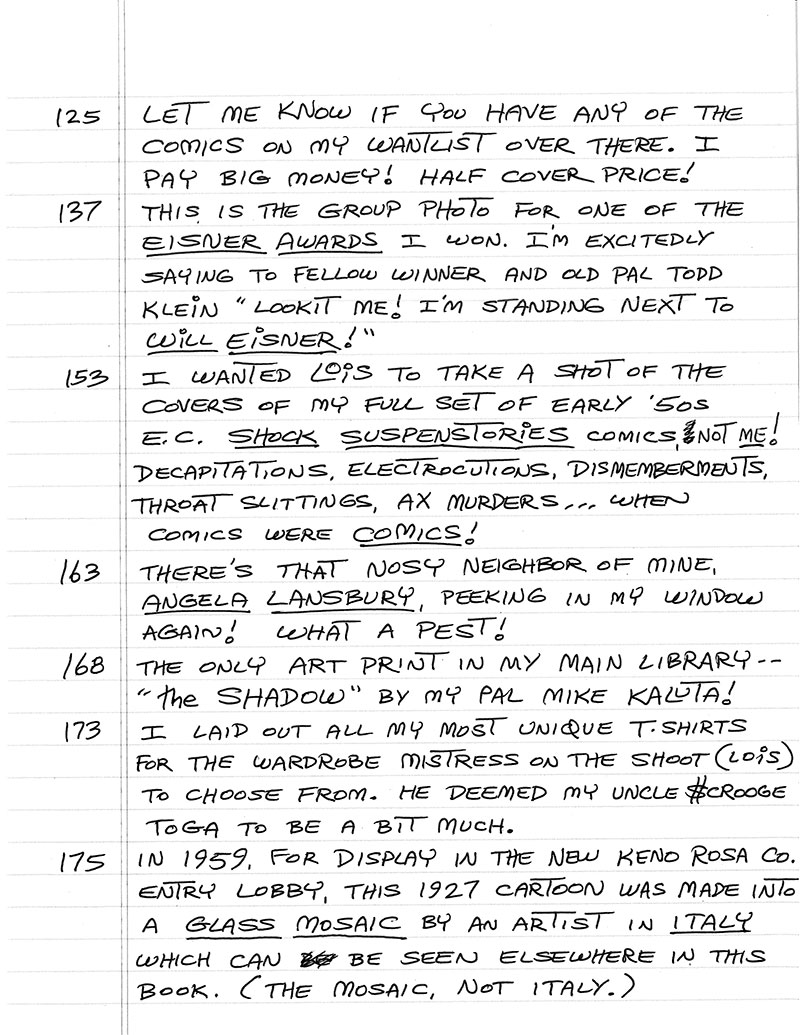 125 LET ME KNOW IF YOU HAVE ANY OF THE
COMICS ON MY WANTLIST OVER THERE. I
PAY BIG MONEY! HALF COVER PRICE!
137 THIS IS THE GROUP PHOTO FOR ONE OF THE
EISNER AWARDS I WON. I'M EXCITEDLY
SAYING TO FELLOW WINNER AND OLD PAL TODD
KLEIN "LOOKIT ME! I'M STANDING NEXT TO
WILL EISNER!"
153 I WANTED LOIS TO TAKE A SHOT OF THE
COVERS OF MY FULL SET OF EARLY '50s
E.C. SHOCK SUSPENSTORIES COMICS, NOT ME!
DECAPITATIONS, ELECTROCUTIONS, DISMEMBERMENTS,
THROAT SLITTINGS, AX MURDERS... WHEN
COMICS WERE COMICS!
163 THERE'S THAT NOSY NEIGHBOR OF MINE,
ANGELA LANSBURY, PEEKING IN MY WINDOW
AGAIN! WHAT A PEST!
168 THE ONLY ART PRINT IN MY MAIN LIBRARY--
"the SHADOW" BY MY PAL MIKE KALUTA!
173 I LAID OUT ALL MY MOST UNIQUE T-SHIRTS
FOR THE WARDROBE MISTRESS ON THE SHOOT (LOIS)
TO CHOOSE FROM. HE DEEMED MY UNCLE $CROOGE
TOGA TO BE A BIT MUCH.
175 IN 1959, FOR DISPLAY IN THE NEW KENO ROSA CO.
ENTRY LOBBY, THIS 1927 CARTOON WAS MADE INTO
A GLASS MOSAIC BY AN ARTIST IN ITALY
WHICH CAN BE SEEN ELSEWHERE IN THIS
BOOK. (THE MOSAIC, NOT ITALY.)